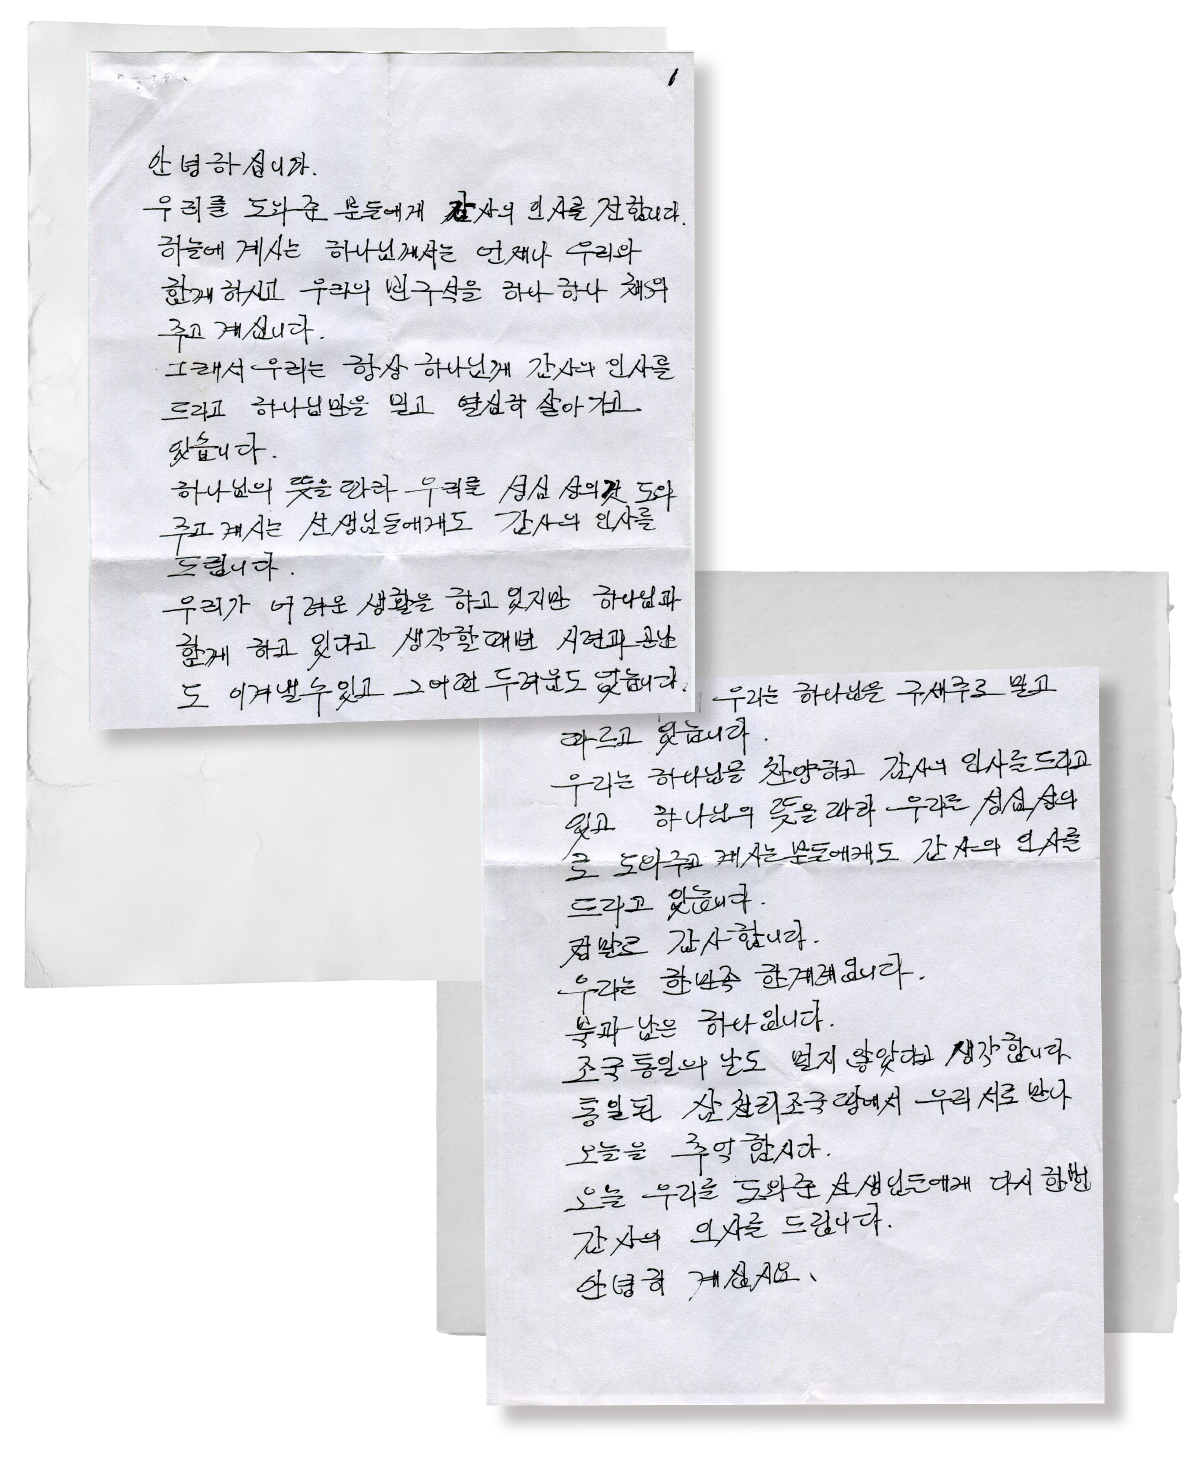 1
안녕하십니까.
우리를 도와준 분들에게 감사의 인사를 전합니다.
하늘에 계시는 하나님께서는 언제나 우리와
함께 하시고 우리의 빈구석을 하나 하나 채워
주고 계십니다.
그래서 우리는 항상 하나님께 감사의 인사를
드리고 하나님만을 믿고 열심히 살아가고
있습니다.
하나님의 뜻을 따라 우리를 성심 성의껏 도와
주고 계시는 선생님들에게도 감사의 인사를
드립니다.
우리가 어려운 생활을 하고 있지만 하나님과
함께 하고 있다고 생각할때면 시련과 곤난
도 이겨낼수있고 그어떤 두려움도 없습니다.
우리는 하나님을 구세주로 믿고
따르고 있습니다.
우리는 하나님을 찬양하고 감사의 인사를드리고
있고 하나님의 뜻을 따라 우리를 성심 성의
로 도와주고 계시는분들에게도 감사의 인사를
드리고 있습니다.
정말로 감사합니다.
우리는 한민족 한계레입니다.
북과 남은 하나입니다.
조국통일의 날도 멀지 않았다고 생각합니다
통일된 삼천리조국땅에서 우리 서로 만나
오늘을 추억합시다.
오늘 우리를 도와준 선생님들에게 다시 한번
감사의 인사를 드립니다.
안녕히 계십시오.